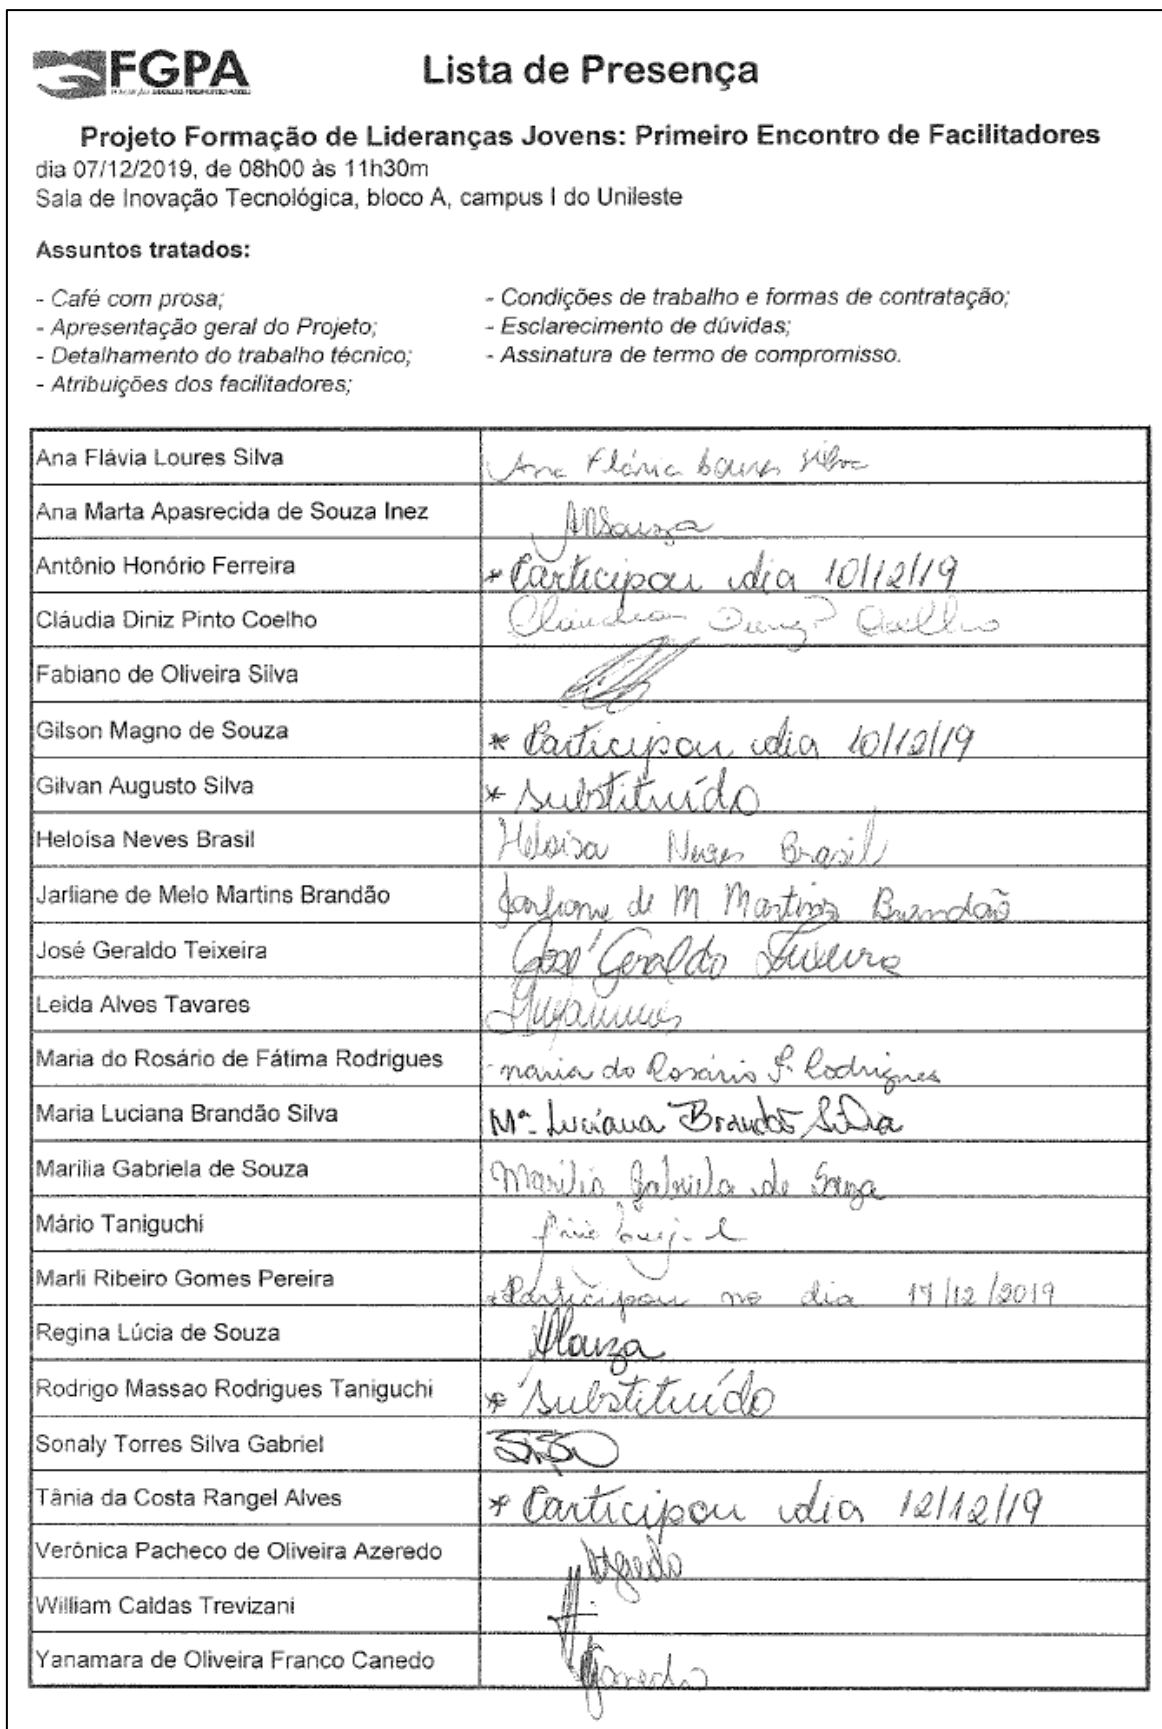 FGPA
Lista de Presença
Projeto Formação de Lideranças Jovens: Primeiro Encontro de Facilitadores
dia 07/12/2019, de 08h00 às 11h30m
Sala de Inovação Tecnológica, bloco A, campus I do Unileste
Assuntos tratados:
- Café com prosa;
- Apresentação geral do Projeto;
- Detalhamento do trabalho técnico;
- Atribuições dos facilitadores;
- Condições de trabalho e formas de contratação;
- Esclarecimento de dúvidas;
- Assinatura de termo de compromisso.
Ana Flávia Loures Silva Ana Flávia Loures Silva
Ana Marta Apasrecida de Souza Inez AMSouza
Antônio Honório Ferreira * Participou dia 10/12/19
Cláudia Diniz Pinto Coelho Cláudia Diniz P Coelho
Fabiano de Oliveira Silva
Gilson Magno de Souza * Participou dia 10/12/19
Gilvan Augusto Silva * Substituído
Heloísa Neves Brasil Heloisa Neves Brasil
Jarliane de Melo Martins Brandão Jarliane de M Martins Brandão
José Geraldo Teixeira José Geraldo Teixeira
Leida Alves Tavares
Maria do Rosário de Fátima Rodrigues maria do Rosário F. Rodrigues
Maria Luciana Brandão Silva Mª Luciana Brandão Silva
Marilia Gabriela de Souza Marilia Gabriela de Souza
Mário Taniguchi
Marli Ribeiro Gomes Pereira * Participou no dia 17/12/2019
Regina Lúcia de Souza
Rodrigo Massao Rodrigues Taniguchi * Substituído
Sonaly Torres Silva Gabriel
Tânia da Costa Rangel Alves * Participou dia 12/12/19
Verônica Pacheco de Oliveira Azeredo Azeredo
William Caldas Trevizani
Yanamara de Oliveira Franco Canedo Canedo